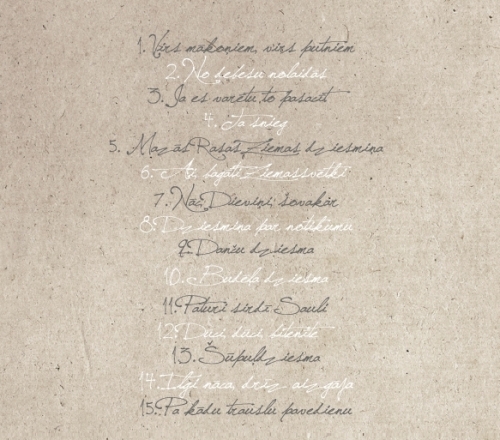 1. Virs mākoņiem, virs putniem
2. No debesu nolaidās
3. Ja es varētu to pasacīt
4. Tā snieg
5. Mazās Rasas Ziemas dziesmiņa
6. Ai, bagāti Ziemassvētki
7. Nāc, Dieviņi, šovakar
8. Dziesmiņa par notikumu
9. Danču dziesma
10. Budēļa dziesma
11. Paturi sirdī Sauli
12. Dūci dūci, bitenīte
13. Šūpuļdziesma
14. Ilgi nāca, drīz aizgāja
15. Pa kādu trauslu pavedienu